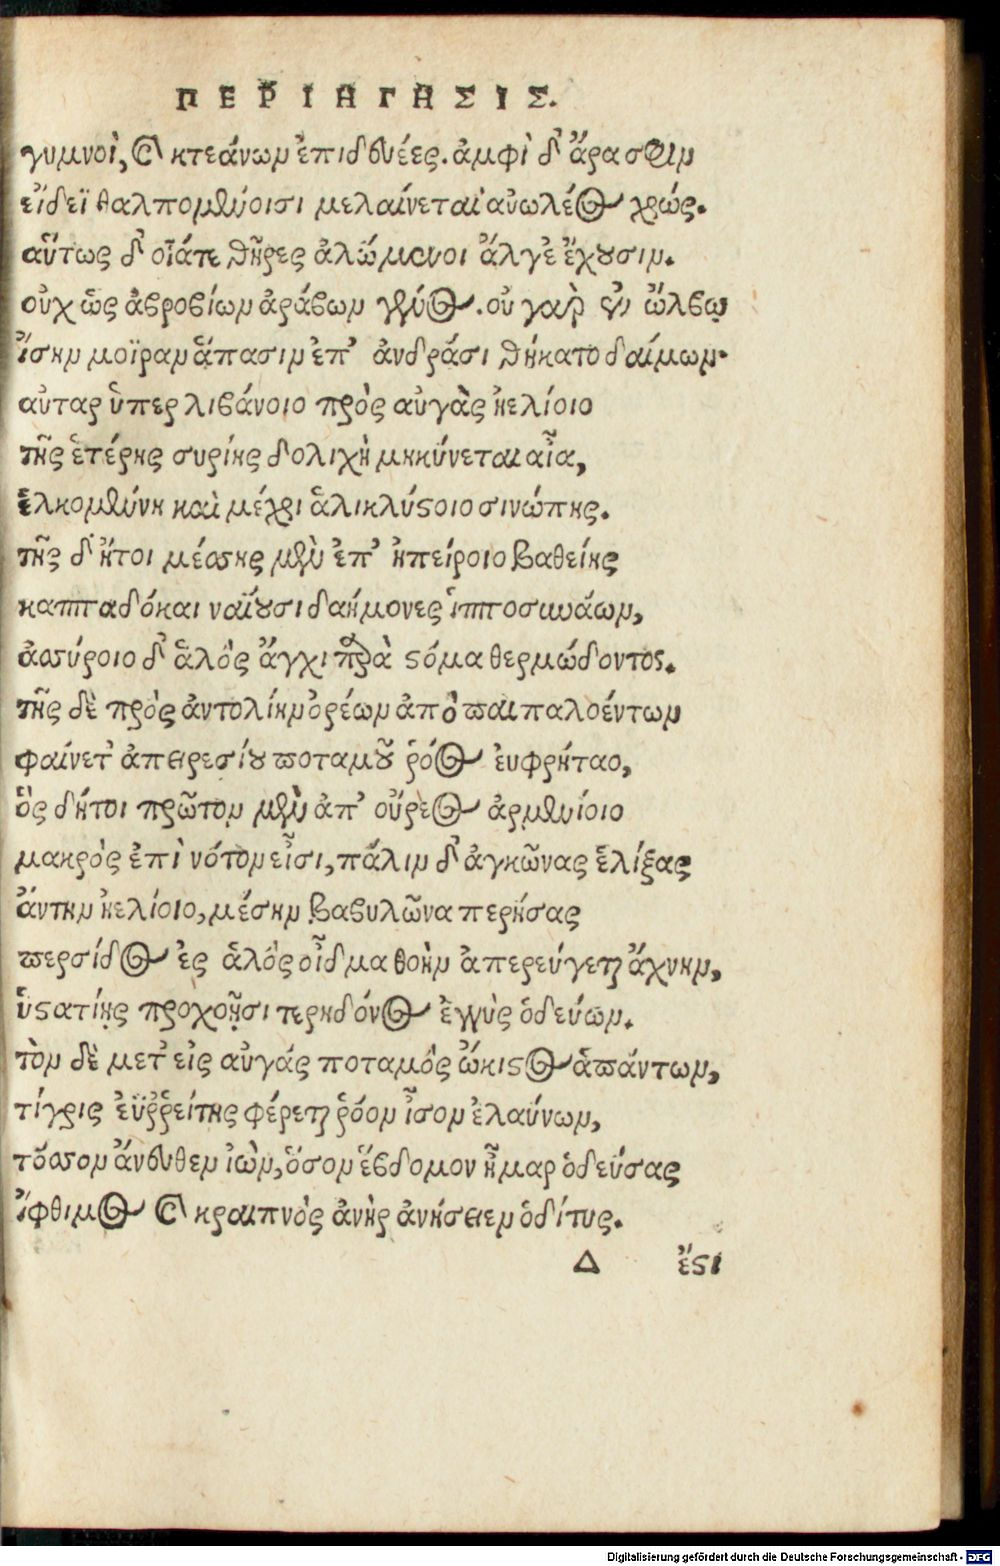 ΠΕΡΙΗΓΗΣΙΣ.
γυμνοὶ, καὶ κτεάνων ἐπιδευέες. ἀμφὶ δ' ἄρα σφιν
εἴδεϊ θαλπομένοισι μελαίνεται αὐωλέος χρώς.
αὕτως δ' οἷάτε θῆρες ἀλώμενοι ἄλγε' ἔχουσιν.
οὐχ ὣς ἁβροβίων ἀράβων γένος. οὐ γὰρ ἐν ὤλβῳ
ἴσην μοῖραν ἅπασιν ἐπ' ἀνδράσι θήκατο δαίμων.
αὐταρ ὕπερ λιβάνοιο πρὸς αὐγὰς ἠελίοιο
τῆς ἑτέρης συρίης δολιχὴ μηκύνεται αἶα,
ἑλκομένη καὶ μέχρι ἁλικλύστοιο σινώπης.
τῆς δ' ἤτοι μέσσης μὲν ἐπ' ἠπείροιο βαθείης
καππαδόκαι ναίουσι δαήμονες ἱπποσυνάων,
ἀσσύροιο δ' ἁλὸς ἄγχι παρὰ στόμα θερμώδοντος.
τῆς δὲ πρὸς ἀντολίην ὀρέων ἀπὸ παιπαλοέντων
φαίνετ' ἀπειρεσίου ποταμοῦ ῥόος ἐυφρήταο,
ὃς δήτοι πρῶτον μὲν ἀπ' οὔρεος ἀρμενίοιο
μακρὸς ἐπὶ νότον εἶσι, πάλιν δ' ἀγκῶνας ἑλίξας
ἄντην ἠελίοιο, μέσην βαβυλῶνα περήσας
περσίδος ἐς ἁλὸς οἶδμα θοὴν ἀπερεύγεται ἄχνην,
ὑστατίῃς προχοῇσι τερηδόνος ἐγγὺς ὁδεύων.
τὸν δὲ μετ' εἰς αὐγάς ποταμὸς ὤκιστος ἁπάντων,
τίγρις ἐϋῤῥείτης φέρεται ῥόον ἶσον ἐλαύνων,
τόσσον ἄνευθεν ἰὼν, ὅσον ἕβδομον ἦμαρ ὁδεύσας
ἴφθιμος καὶ κραιπνὸς ἀνὴρ ἀνήσειεν ὁδίτης.
Δ ἔστι
Digitalisierung gefördert durch die Deutsche Forschungsgemeinschaft - DFG